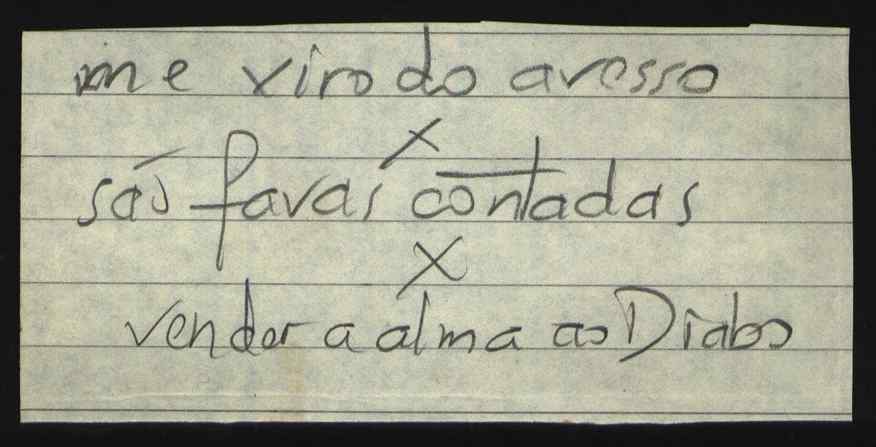 me viro do avesso
X
são favas contadas
X
vender a alma ao Diabo